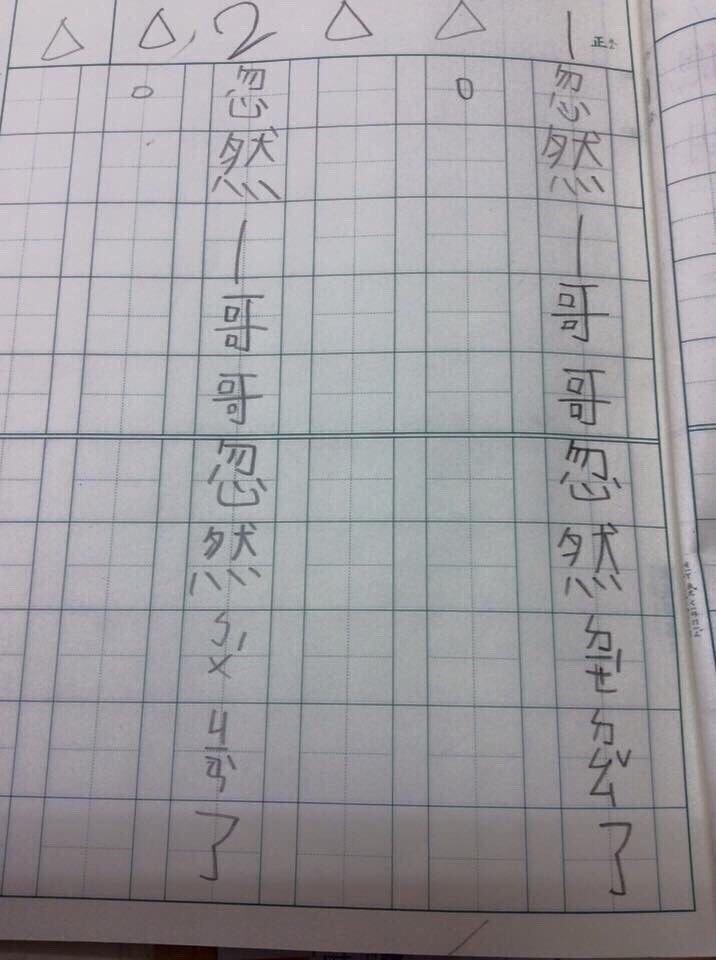 1
忽然｜哥哥忽然ㄉㄧㄝˊㄉㄠˇ了
。
2
忽然｜哥哥忽然ㄅㄨˊㄐㄧㄢˋ了
。